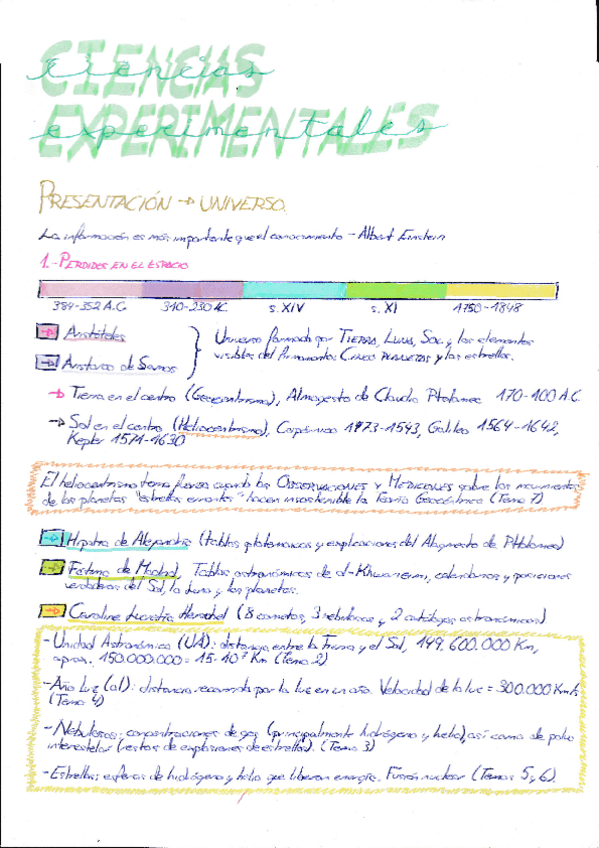 CIENCIAS
Ciencias
EXPERIMENTALES
experimentales
PRESENTACIÓN → UNIVERSO.
La información es más importante que el conocimiento - Albert Einstein
1.- PERDIDOS EN EL ESPACIO
384-352 A.C. 310-230 AC s. XIV s. XI 1750-1848
→ Aristóteles
→ Aristarco de Samos
Universo formado por TIERRA, LUNA, SOL y los elementos
visibles del firmamento: CINCO PLANETAS y las estrellas.
→ Tierra en el centro (Geocentrismo), Almagesto de Claudio Ptolomeo 170-100 A.C.
→ Sol en el centro (Heliocentrismo), Copérnico 1473-1543, Galileo 1564-1642,
Kepler 1571-1630
El heliocentrismo toma fuerza cuando las OBSERVACIONES y MEDICIONES sobre los movimientos
de los planetas "estrellas errantes" hacen insostenible la Teoría Geocéntrica (Tema 7)
→ Hipatia de Alejandría (tablas ptolemaicas y explicaciones del Almagesto de Ptolomeo)
→ Fátima de Madrid, Tablas astronómicas de al-Khwarizmi, calendarios y posiciones
verdaderas del Sol, la Luna y los planetas.
→ Caroline Lucretia Herschel (8 cometas, 3 nebulosas y 2 catálogos astronómicos)
- Unidad Astronómica (UA): distancia entre la Tierra y el Sol, 149.600.000 Km,
aprox. 150.000.000 = 15·10⁷ Km (Tema 2)
- Año Luz (al): distancia recorrida por la luz en un año. Velocidad de la luz = 300.000 Km/s
(Tema 4)
- Nebulosas: concentraciones de gas (principalmente hidrógeno y helio), así como de polvo
interestelar (restos de explosiones de estrellas). (Tema 3)
- Estrellas: esferas de hidrógeno y helio que liberan energía. Fusión nuclear (Temas 5 y 6).